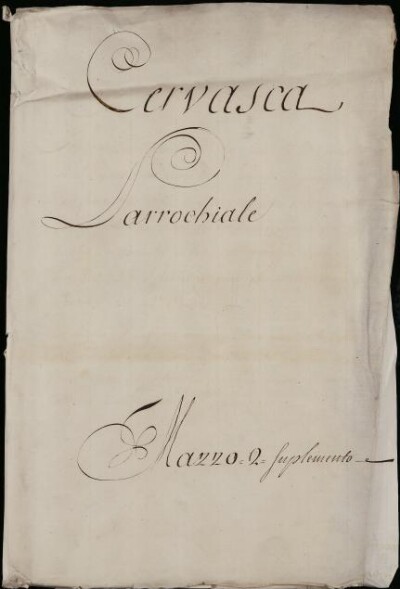 Cervasca
Parrochiale
Mazzo = 2 = Suplemento